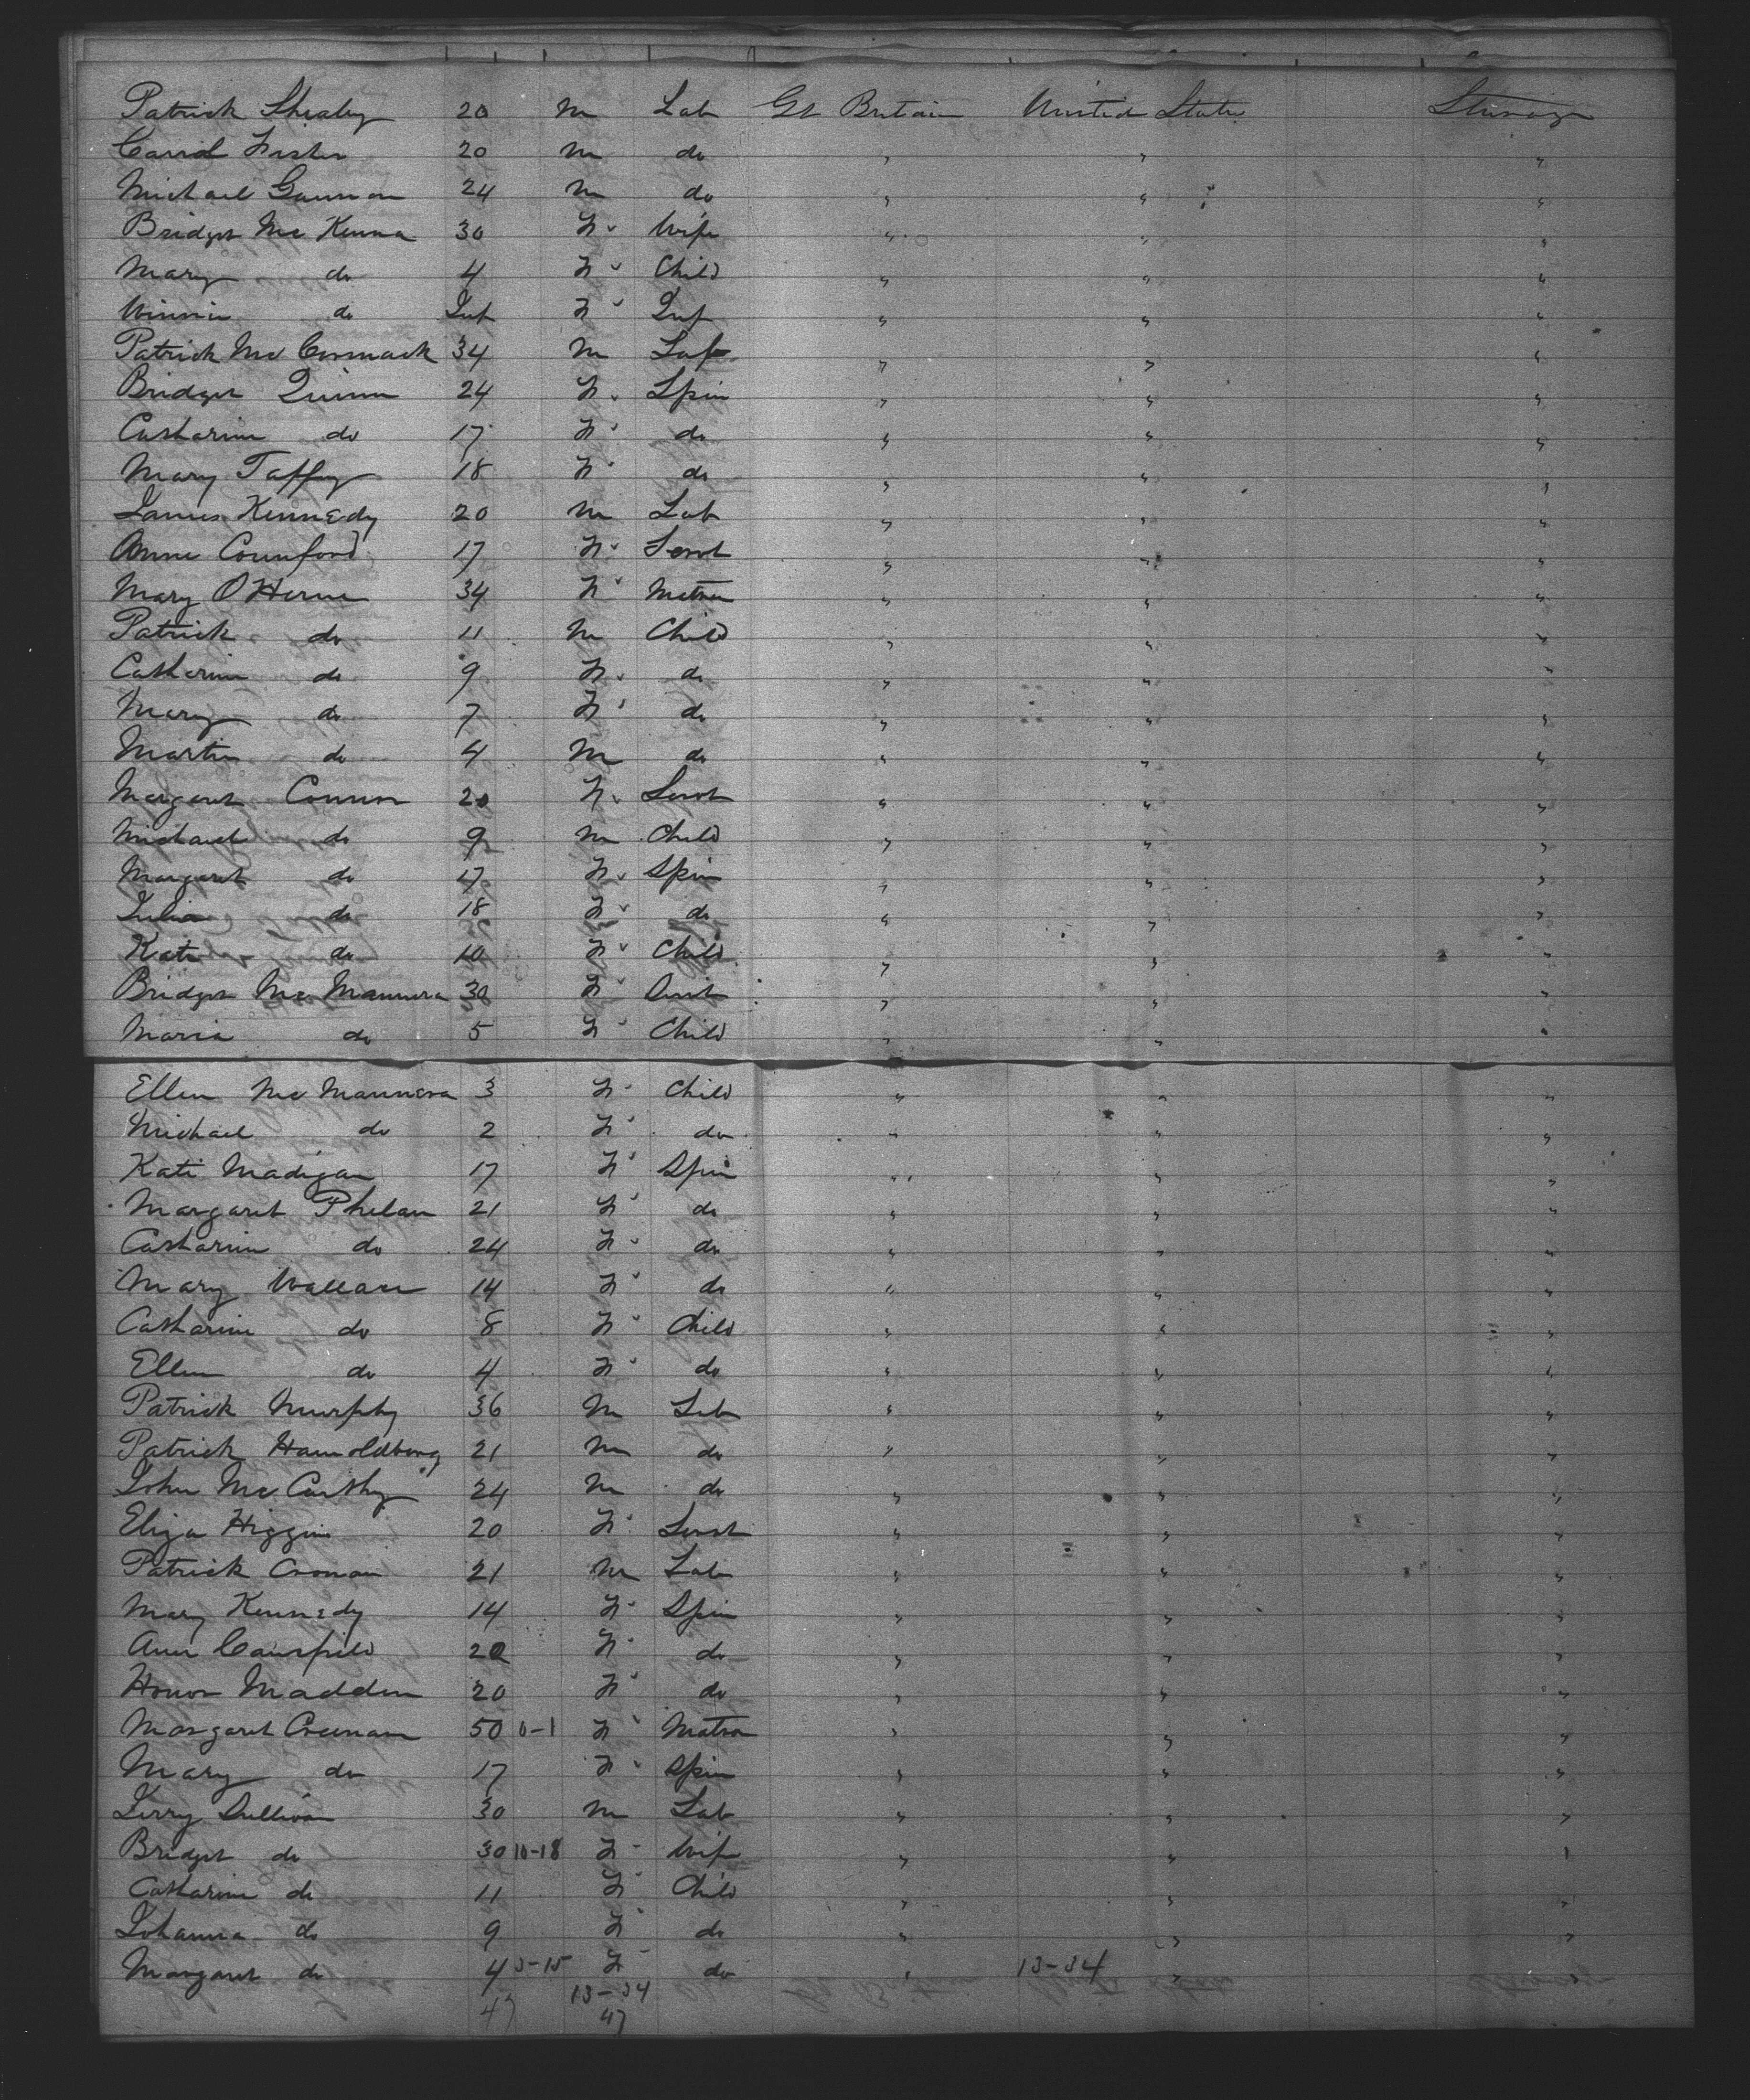 Patrick Shealy 20 M Lab Gt Britain United States Steerage
Carrol Fister 20 M do " " "
Michael Gannon 24 M do " " "
Bridget Mc Kenna 30 F Wife " " "
Mary do 4 F Child " " "
Winnie do Inf F Inf " " "
Patrick Mc Cormack 34 M Lab " " "
Bridget Quinn 24 F Spin " " "
Catharine do 17 F do " " "
Mary Taffy 18 F do " " "
James Kennedy 20 M Lab " " "
Anne Counford 17 F Servt " " "
Mary O'Herne 34 F Matron " " "
Patrick do 11 M Child " " "
Catherine do 9 F do " " "
Mary do 7 F do " " "
Martin do 4 M do " " "
Margaret Connor 20 F Servt " " "
Michael do 9 M Child " " "
Margaret do 17 F Spin " " "
Julia do 18 F do " " "
Kate do 10 F Child " " "
Bridget Mc Mannera 30 F " " "
Maria do 5 F Child " " "
Ellen Mc Mannera 3 F Child " " "
Michael do 2 F do " " "
Kate Madigan 17 F Spin " " "
Margaret Phelan 21 F do " " "
Catharine do 24 F do " " "
Mary Wallace 14 F do " " "
Catharine do 8 F Child " " "
Ellen do 4 F do " " "
Patrick Murphy 36 M Lab " " "
Patrick 21 M do " " "
John Mc Carthy 24 M do " " "
Eliza Higgins 20 F Servt " " "
Patrick Cronan 21 M Lab " " "
Mary Kennedy 14 F Spin " " "
Ann Caulfield 20 F do " " "
Honor Madden 20 F do " " "
Margaret Creenan 50 0-1 F Matron " " "
Mary do 17 F Spin " " "
Jerry Sullivan 30 M Lab " " "
Bridget do 30 10-18 F Wife " " "
Catharine do 11 F Child " " "
Johanna do 9 F do " " "
Margaret do 4 3-15 F do " 13-34 " "
47 13-34
47